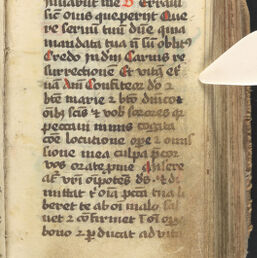 iuuabūt me D Erraui
sic̄ ouis que perijt Que
re seruū tuū dn̄e quia
mandata tua nō sū oblit9
Credo in dm̄ Carnis re
surrectione Et vitā et
Am̄ Confiteor do et
bt̄e marie et bt̄o
oīb3 scīs et vob sorores qr
peccaui nimis cogita
cōe locutione ope et omis
sione mea culpa pcor
vos orate p me Misere
at vr̄i oīpotēs ds et di
mittat oīa pctā vr̄a li
beret te ab oī malo sal
uet et cōfirmet ī oī ope
bono et pducat ad vitā